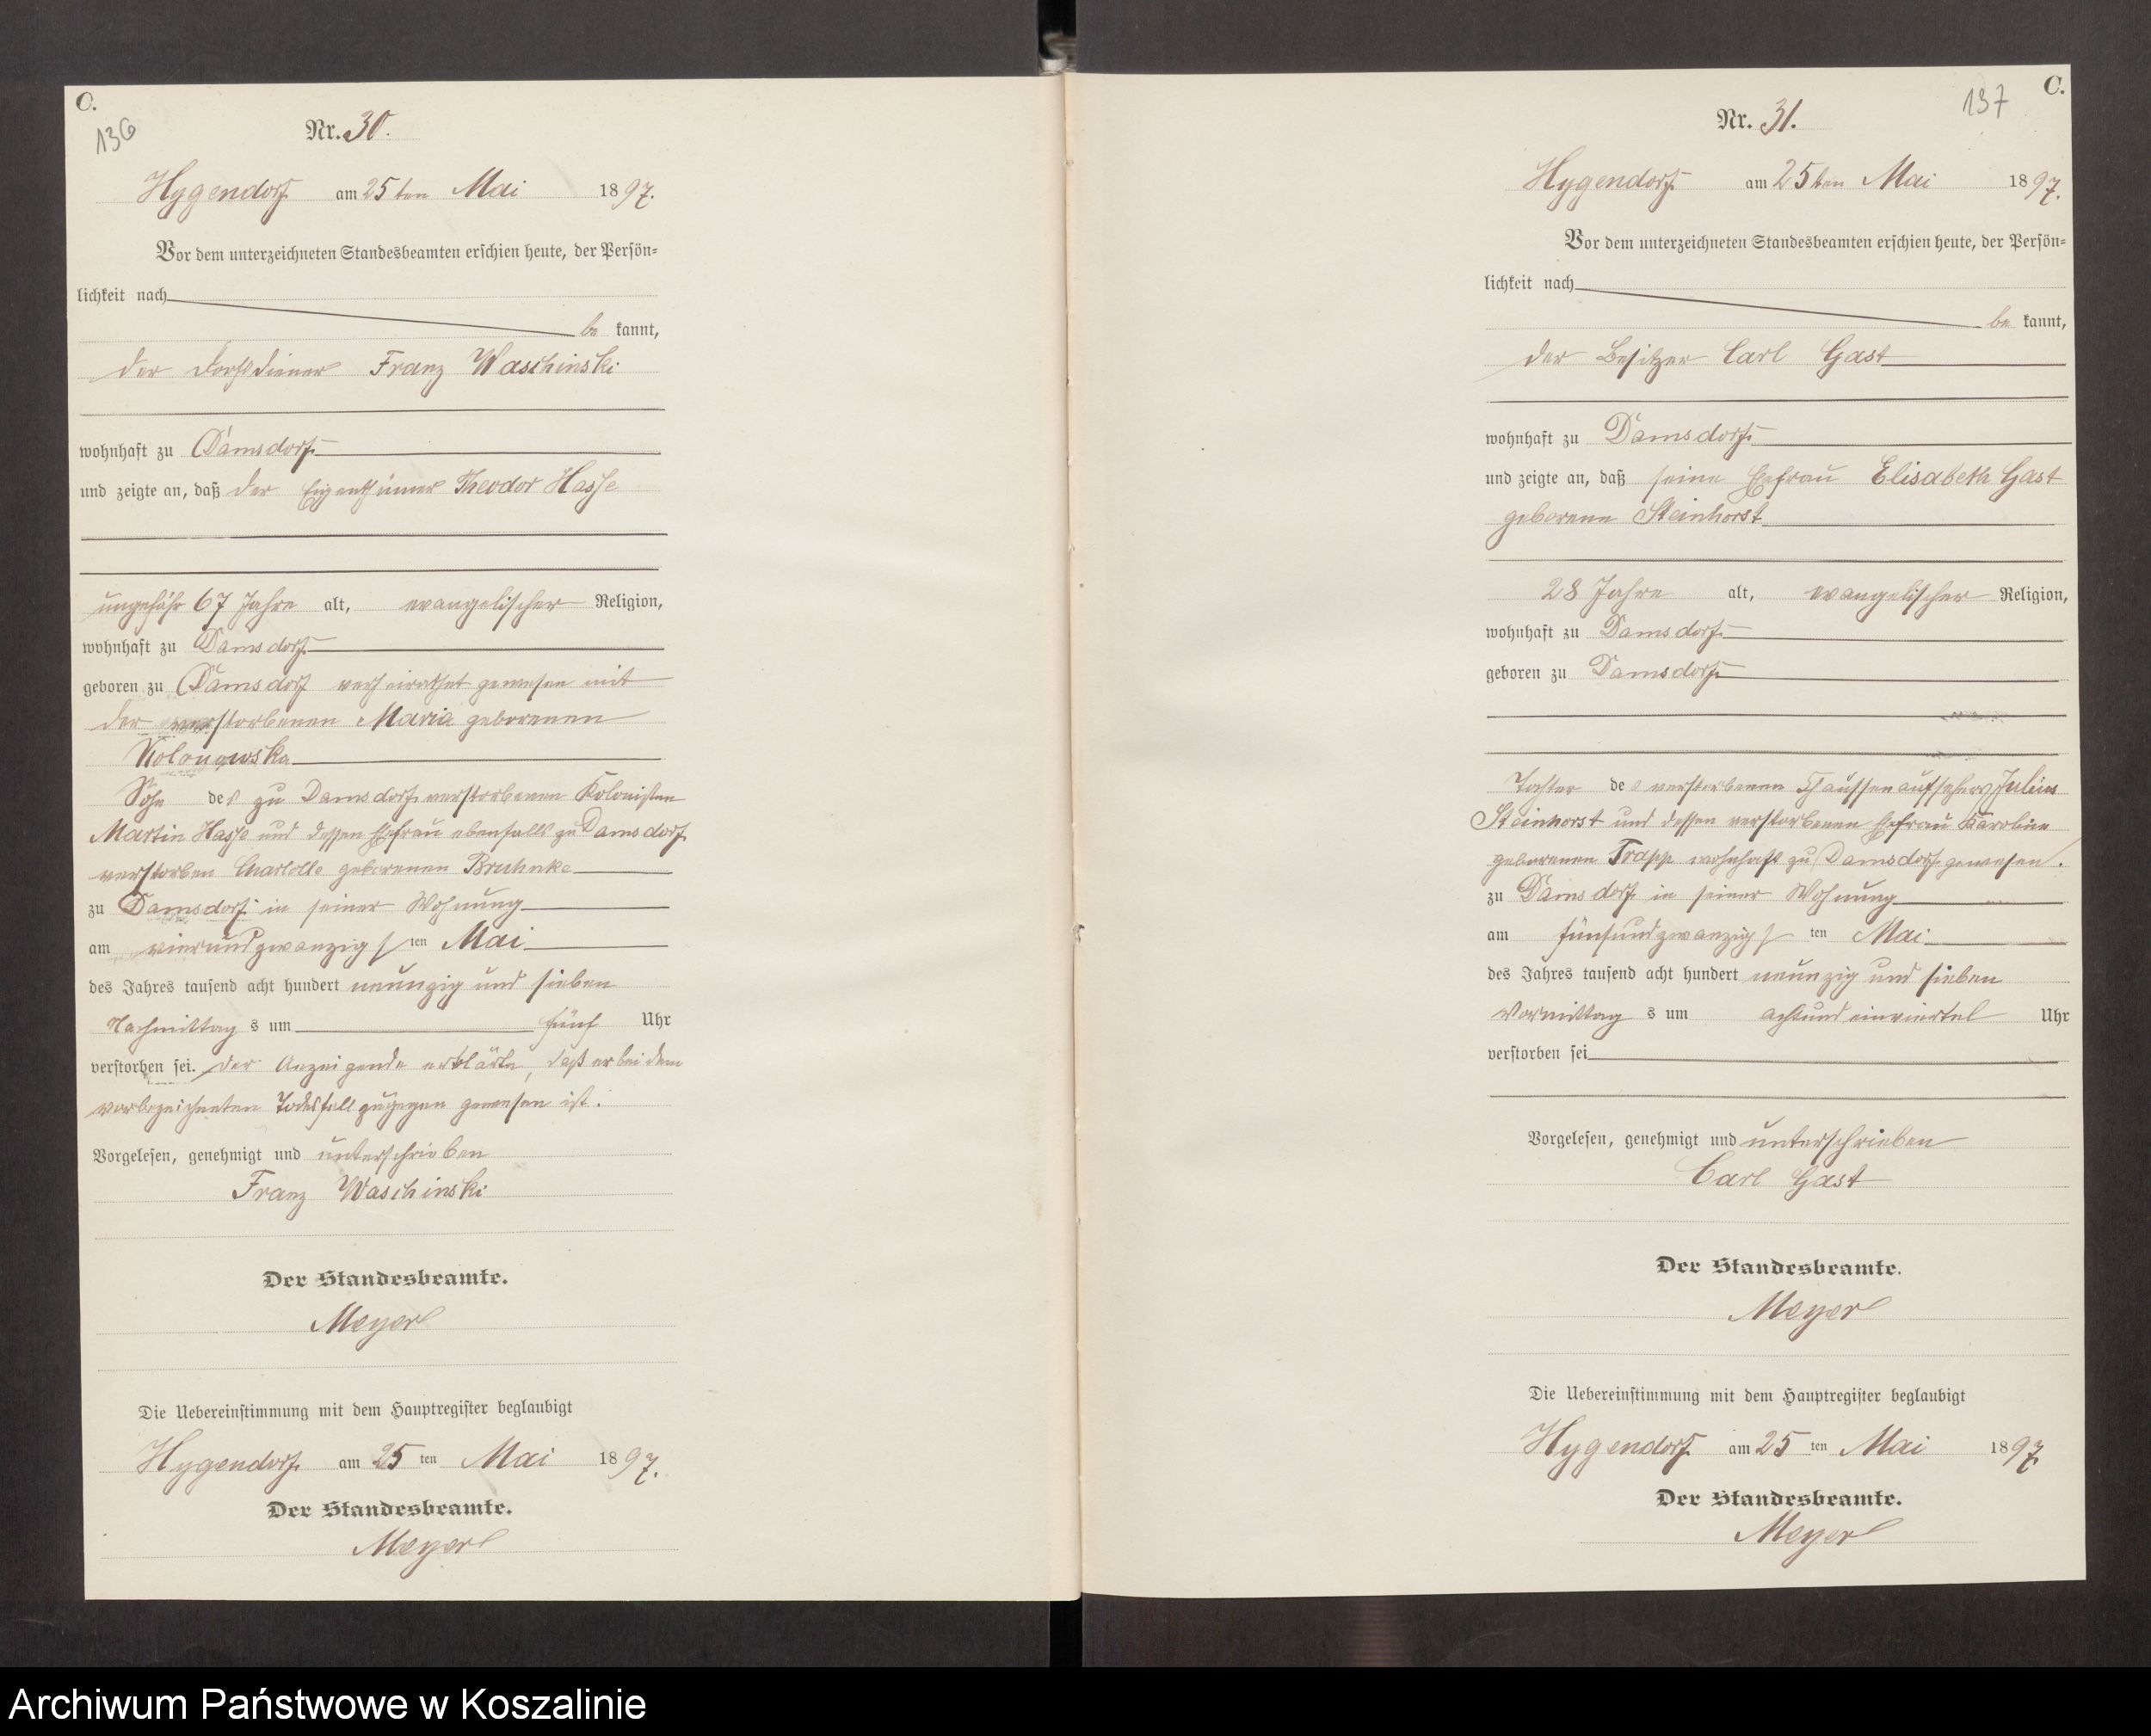 C.
136
Nr. 30.
Hygendorf am 25ten Mai 1897.
Vor dem unterzeichneten Standesbeamten erschien heute, der Persön-
lichkeit nach
be kannt,
der Dorfdiener Franz Waschinski
wohnhaft zu Damsdorf
und zeigte an, daß der Eigenthümer Theodor Hasse
ungefähr 67 Jahre alt, evangelischer Religion,
wohnhaft zu Damsdorf
geboren zu Damsdorf verheirathet gewesen mit
der verstorbenen Maria geborenen
Kolonowska
Sohn des zu Damsdorf verstorbenen Kolonisten
Martin Hasse und dessen Ehefrau ebenfalls zu Damsdorf
verstorben Charlotte geborenen Bruhnke
zu Damsdorf in seiner Wohnung
am vierundzwanzigsten Mai
des Jahres tausend acht hundert neunzig und sieben
Nachmittags um fünf Uhr
verstorben sei. Der Anzeigende erklärte, daß er bei dem
vorbezeichneten Todesfall zugegen gewesen ist.
Vorgelesen, genehmigt und unterschrieben
Franz Waschinski
Der Standesbeamte.
Meyer
Die Uebereinstimmung mit dem Hauptregister beglaubigt
Hygendorf am 25 ten Mai 1897.
Der Standesbeamte.
Meyer
C.
137
Nr. 31.
Hygendorf am 25ten Mai 1897.
Vor dem unterzeichneten Standesbeamten erschien heute, der Persön-
lichkeit nach
be kannt,
der Besitzer Carl Gast
wohnhaft zu Damsdorf
und zeigte an, daß seine Ehefrau Elisabeth Gast
geborene Steinhorst
28 Jahre alt, evangelischer Religion,
wohnhaft zu Damsdorf
geboren zu Damsdorf
Tochter des verstorbenen Chausseeaufsehers Julius
Steinhorst und dessen verstorbenen Ehefrau Karoline
geborenen Trapp wohnhaft zu Damsdorf gewesen.
zu Damsdorf in seiner Wohnung
am fünfundzwanzigsten Mai
des Jahres tausend acht hundert neunzig und sieben
Vormittags um achtundeinviertel Uhr
verstorben sei
Vorgelesen, genehmigt und unterschrieben
Carl Gast
Der Standesbeamte.
Meyer
Die Uebereinstimmung mit dem Hauptregister beglaubigt
Hygendorf am 25 ten Mai 1897
Der Standesbeamte.
Meyer
Archiwum Państwowe w Koszalinie